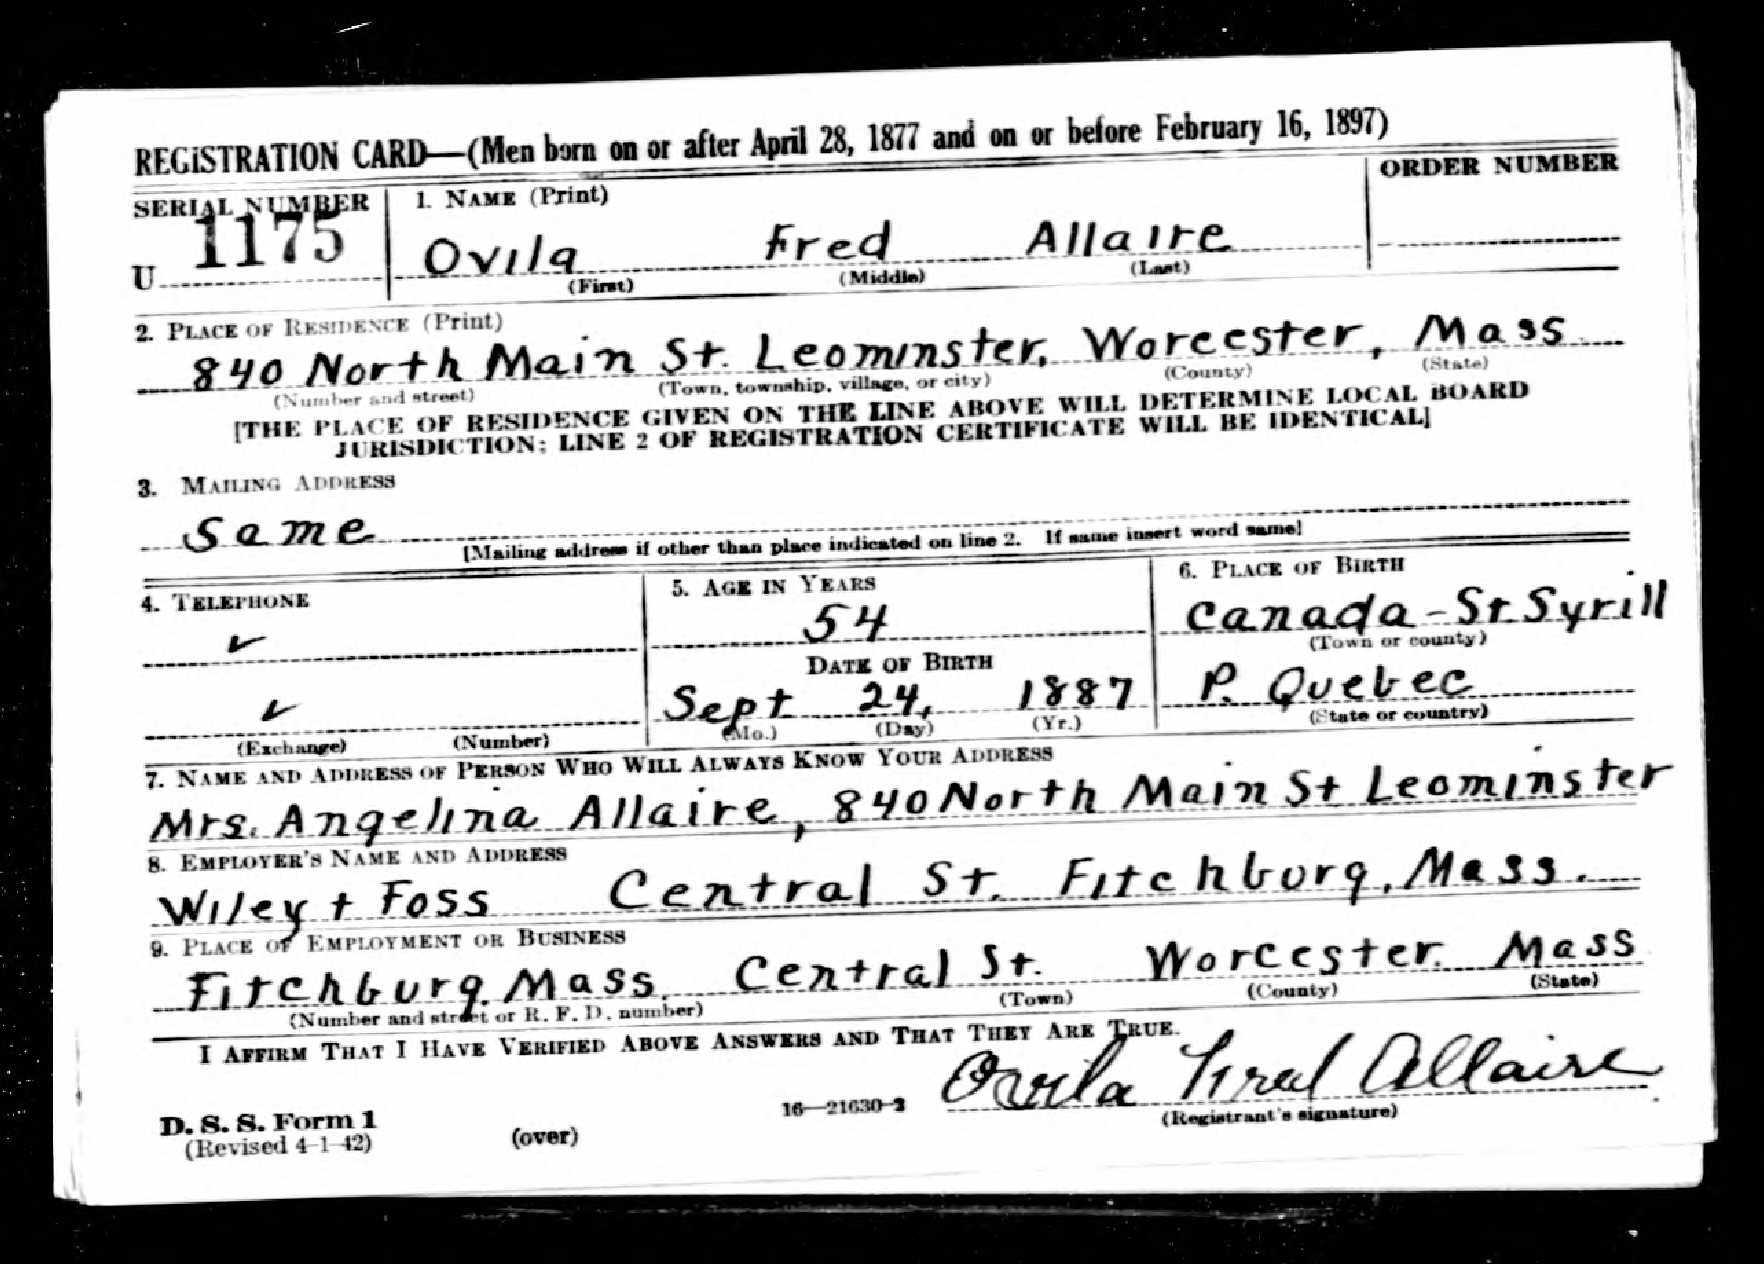 REGISTRATION CARD—(Men born on or after April 28, 1877 and on or before February 16, 1897)
SERIAL NUMBER
1. NAME (Print)
ORDER NUMBER
U 1175
Ovila Fred Allaire
(First) (Middle) (Last)
2. PLACE OF RESIDENCE (Print)
840 North Main St. Leominster, Worcester, Mass
(Number and street) (Town, township, village, or city) (County) (State)
[THE PLACE OF RESIDENCE GIVEN ON THE LINE ABOVE WILL DETERMINE LOCAL BOARD
JURISDICTION; LINE 2 OF REGISTRATION CERTIFICATE WILL BE IDENTICAL]
3. MAILING ADDRESS
Same
[Mailing address if other than place indicated on line 2. If same insert word same]
4. TELEPHONE
✓
✓
(Exchange) (Number)
5. AGE IN YEARS
54
DATE OF BIRTH
Sept 24, 1887
(Mo.) (Day) (Yr.)
6. PLACE OF BIRTH
Canada - St. Syrill
(Town or county)
P. Quebec
(State or country)
7. NAME AND ADDRESS OF PERSON WHO WILL ALWAYS KNOW YOUR ADDRESS
Mrs. Angelina Allaire, 840 North Main St Leominster
8. EMPLOYER'S NAME AND ADDRESS
Wiley + Foss Central St. Fitchburg, Mass.
9. PLACE OF EMPLOYMENT OR BUSINESS
Fitchburg, Mass. Central St. Worcester. Mass
(Number and street or R. F. D. number) (Town) (County) (State)
I AFFIRM THAT I HAVE VERIFIED ABOVE ANSWERS AND THAT THEY ARE TRUE.
Ovila Fred Allaire
(Registrant's signature)
D. S. S. Form 1
(Revised 4-1-42)
(over)
16—21630-2